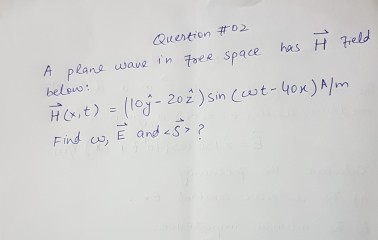 Question #02
A plane wave in free space has H⃗ field
below:
H⃗(x,t) = (10ŷ - 20ẑ) sin (ωt - 40x) A/m
Find ω, E⃗ and <S⃗> ?